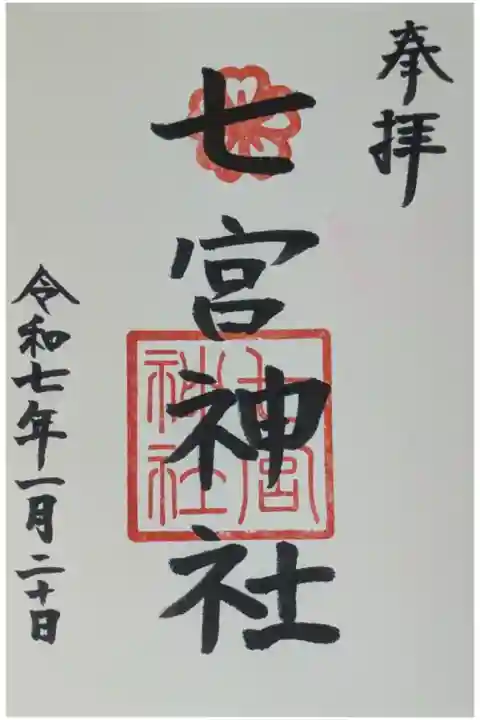 奉拝
七宮神社
七宮
神社
令和七年一月二十日